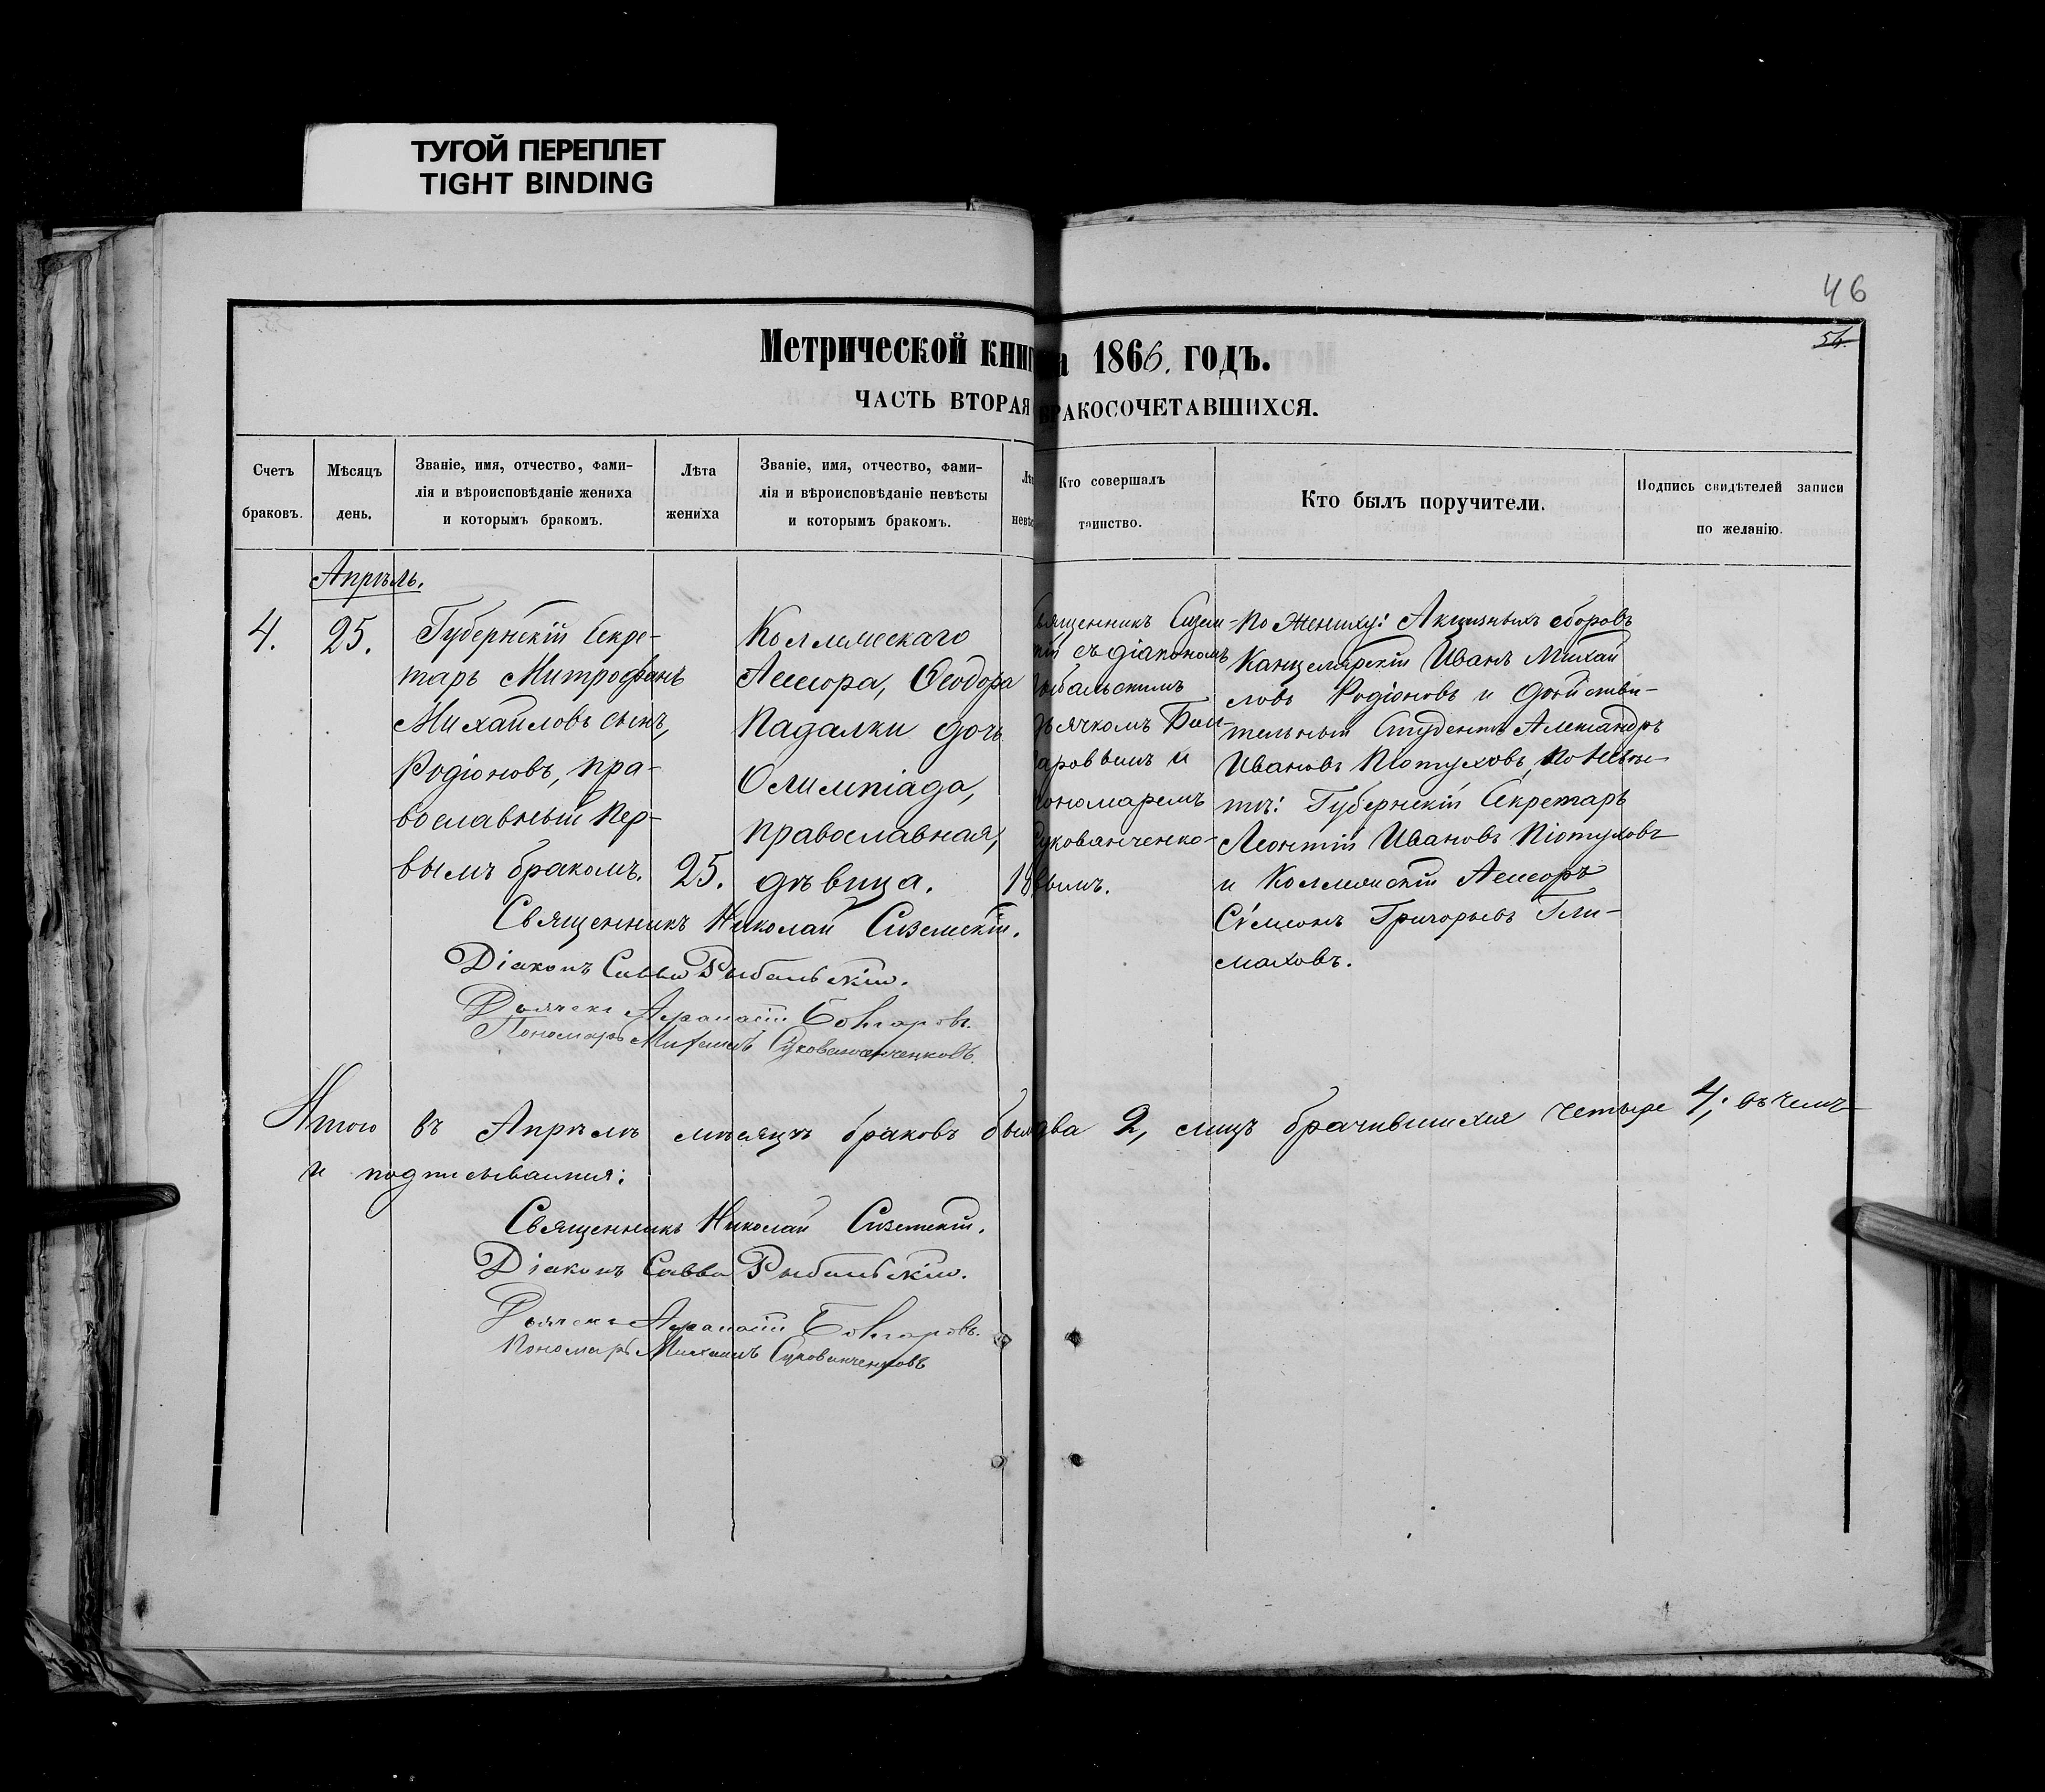 ТУГОЙ ПЕРЕПЛЕТ
TIGHT BINDING
46
54.
Метрической книг а 1866. годъ.
ЧАСТЬ ВТОРАЯ БРАКОСОЧЕТАВШИХСЯ.
Счетъ
браковъ.
Мѣсяцъ
день.
Званіе, имя, отчество, фами-
лія и вѣроисповѣданіе жениха
и которымъ бракомъ.
Лѣта
жениха
Званіе, имя, отчество, фами-
лія и вѣроисповѣданіе невѣсты
и которымъ бракомъ.
Лѣ
невѣс
Кто совершалъ
таинство.
Кто былъ поручители.
Подпись свидѣтелей записи
по желанію.
Апрѣль.
4.
25.
Губернскій Секре-
тарь Митрофанъ
Михайловъ сынъ,
Родіоновъ, пра-
вославный пер-
вымъ бракомъ.
25.
Коллежскаго
Ассесора, Ѳеодора
Падалки дочь
Олимпіада,
православная,
дѣвица.
18
вященникъ
кій съ діакономъ
ыбальскимъ
ьячкомъ
аровымъ и
ономаремъ
укованченко-
вымъ.
По Жениху: Акцизныхъ сборовъ
Канцелярскій Иванъ Михай
ловъ Родіоновъ и дѣйстви-
тельный Студентъ Александръ
Ивановъ Пѣтуховъ, по невѣс-
тѣ: Губернскій Секретарь
Леонтій Ивановъ Пѣтуховъ
и Коллежскій Ассесоръ
Сѵмеонъ Григорьевъ Гли-
маховъ.
Священникъ Николай Сиземскій.
Діаконъ Савва Рыбальскій.
Дьячекъ Аѳанасій Болгаровъ.
Пономарь Михаилъ Сукованченковъ.
Итого въ Апрѣлѣ мѣсяцѣ браковъ было два 2, лицъ брачившихся четыре 4; въ чемъ
и подписываемся:
Священникъ Николай Сиземскій.
Діаконъ Савва Рыбальскій.
Дьячекъ Аѳанасій Болгаровъ.
Пономарь Михаилъ Сукованченковъ